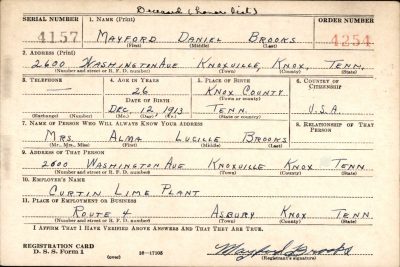 Deceased (honor list)
SERIAL NUMBER 1. NAME (Print) ORDER NUMBER
4157 MAYFORD DANIEL BROOKS 4254
(First) (Middle) (Last)
2. ADDRESS (Print)
2600 WASHINGTON AVE KNOXVILLE, KNOX, TENN.
(Number and street or R. F. D. number) (Town) (County) (State)
3. TELEPHONE 4. AGE IN YEARS 5. PLACE OF BIRTH 6. COUNTRY OF CITIZENSHIP
26 KNOX COUNTY
DATE OF BIRTH (Town or county)
DEC. 12, 1913 TENN. U.S.A
(Exchange) (Number) (Mo.) (Day) (Yr.) (State or country)
7. NAME OF PERSON WHO WILL ALWAYS KNOW YOUR ADDRESS 8. RELATIONSHIP OF THAT PERSON
MRS. ALMA LUCILLE BROOKS
(Mr., Mrs., Miss) (First) (Middle) (Last)
9. ADDRESS OF THAT PERSON
2600 WASHINGTON AVE KNOXVILLE KNOX TENN
(Number and street or R. F. D. number) (Town) (County) (State)
10. EMPLOYER'S NAME
CURTIN LIME PLANT
11. PLACE OF EMPLOYMENT OR BUSINESS
ROUTE 4 ASBURY KNOX TENN.
(Number and street or R. F. D. number) (Town) (County) (State)
I AFFIRM THAT I HAVE VERIFIED ABOVE ANSWERS AND THAT THEY ARE TRUE.
REGISTRATION CARD
D. S. S. Form 1 (over) 16—17105 Mayford Brooks
(Registrant's signature)